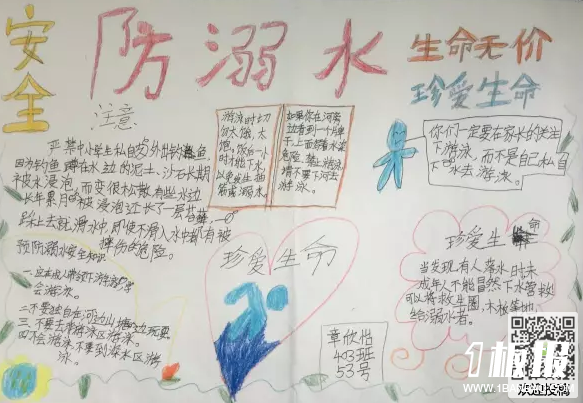 安全
防溺水
生命无价
珍爱生命
注意
严禁中小学生私自外出钓鱼
因为钓鱼蹲在水边的泥土、沙石长期
被水浸泡,而变很松散,有些水边
长年累月的被浸泡还长了一层苔藓,一
踩上去就滑水中,即使不滑入水中都有被
摔伤的危险。
游泳时切
勿太饿、太
饱。饭后一小
时才能下水,
以免发生抽
筋或溺水。
如果你在河旁
边看到一个牌
子上面写着水深
危险,禁止游泳
增不要下河去
游泳。
你们一定要在家长的关注
下游泳,而不是自己私自
下水去游泳。
预防溺水安全知识
会游泳。
二不要独自在河边山塘边玩耍
三、不要去非游泳区游泳。
四不会游泳不要到深水区游
泳。
珍爱生命
珍爱生命
当发现有人落水时未
成年人不能冒然下水营救
可以将救生圈,木板等地
给溺水者。
章欣怡
403班
53号
1板报
WWW.1BANBAO.COM
欢迎投稿